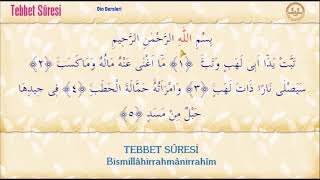 Tebbet Sûresi
Din Dersleri
بِسْمِ اللّٰهِ الرَّحْمٰنِ الرَّحِيمِ
تَبَّتْ يَدَٓا اَبٖى لَهَبٍ وَتَبَّ ﴿١﴾ مَٓا اَغْنٰى عَنْهُ مَالُهُ وَمَاكَسَبَ ﴿٢﴾
سَيَصْلٰى نَارًا ذَاتَ لَهَبٍ ﴿٣﴾ وَامْرَاَتُهُ حَمَّالَةَ الْحَطَبِ ﴿٤﴾ فٖى جٖيدِهَا
حَبْلٌ مِنْ مَسَدٍ ﴿٥﴾
TEBBET SÛRESİ
Bismillâhirrahmânirrahîm